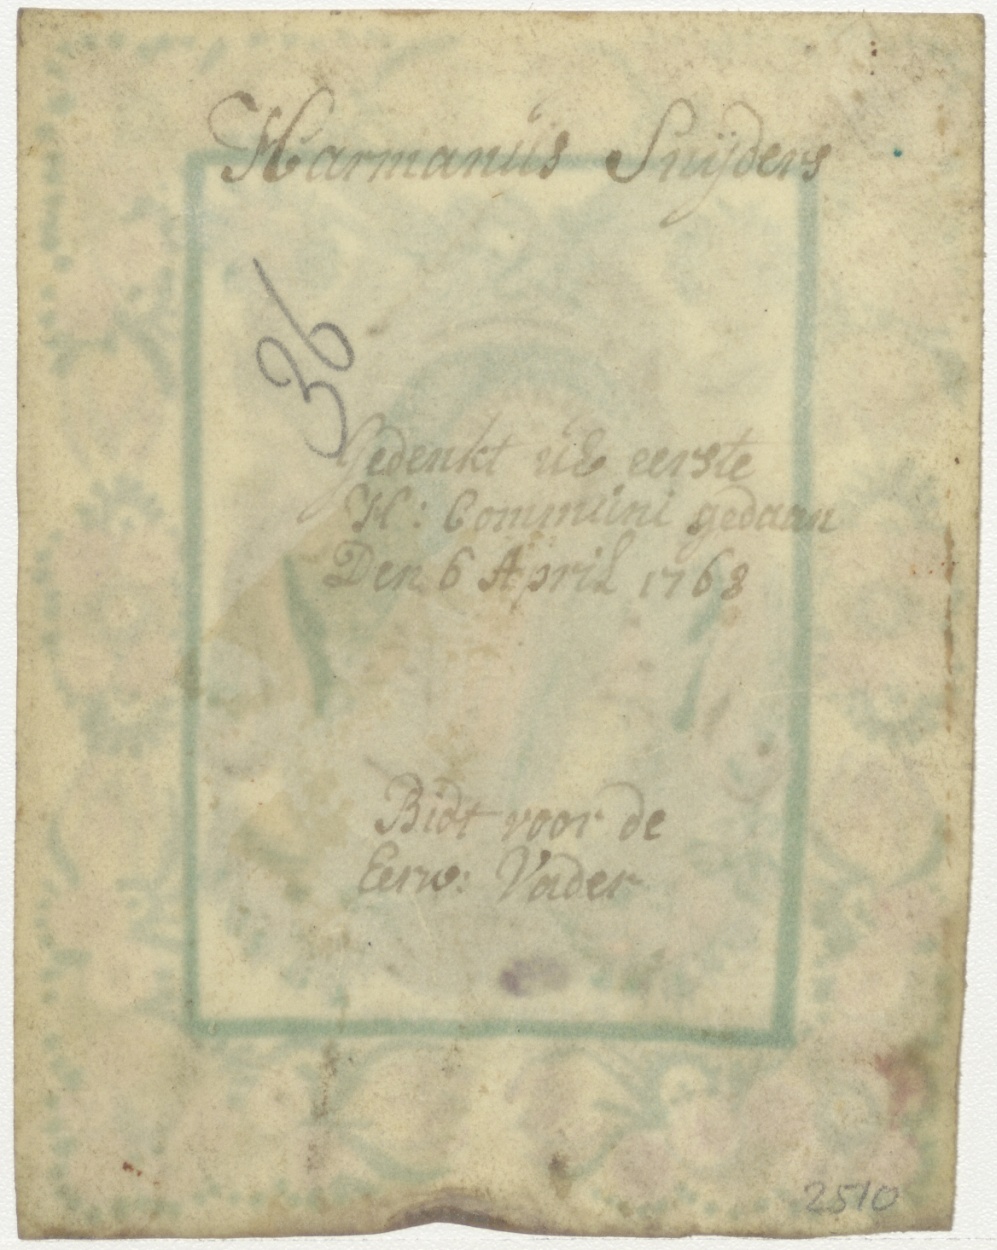 Harmanüs Snÿders
36
Gedenkt uE eerste
H: Commüni gedaan
Den 6 April 1768
Bidt voor de
Eerw: Vader
2510